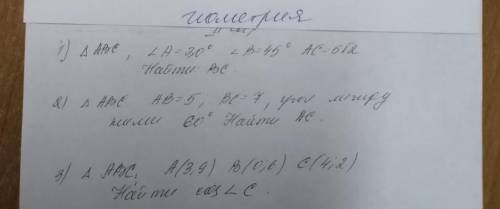 геометрия
1) △ ABC, ∠A=30° ∠B=45° AC=5√2
Найти BC
2) △ ABC AB=5, BC=7, угол между
ними 60° Найти AC.
3) △ ABC, A(3,9) B(0,6) C(4;2)
Найти cos∠C.